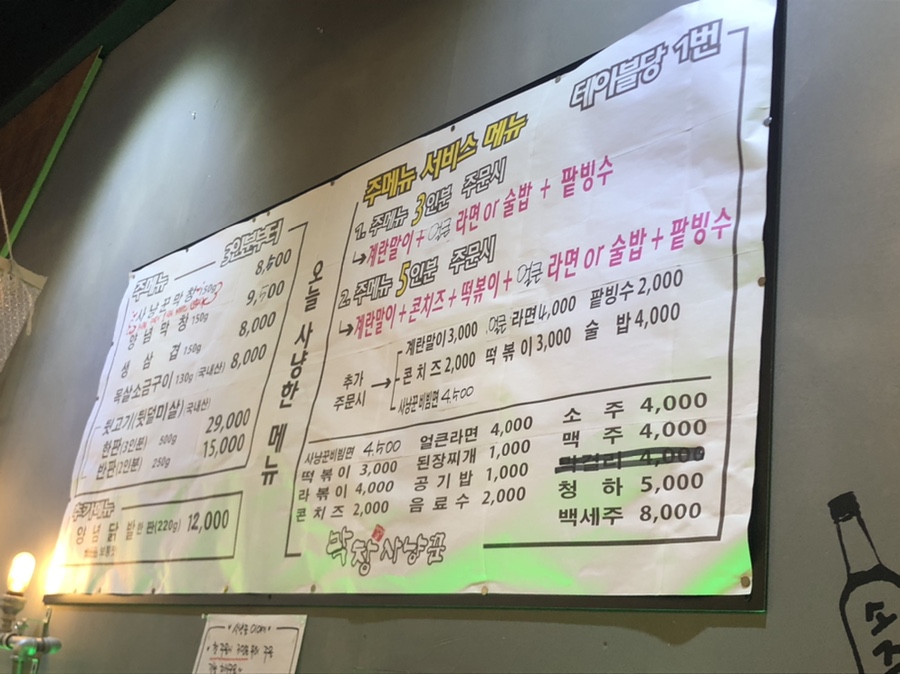 주메뉴 3인분부터
사냥꾼막창 150g 8,500
양념막창 150g 9,500
생삼겹 150g 8,000
목살소금구이 130g (국내산) 8,000
뒷고기(뒷덜미살) 국내산)
한판(3인분) 500g 29,000
반판(2인분) 250g 15,000
추가메뉴
양념닭발 한판(220g) 12,000
오늘 사냥한 메뉴
주메뉴 서비스 메뉴 테이블당 1번
1. 주메뉴 3인분 주문시
계란말이 + 얼큰 라면 or 술밥 + 팥빙수
2. 주메뉴 5인분 주문시
계란말이 + 콘치즈 + 떡볶이 + 얼큰 라면 or 술밥 + 팥빙수
추가 주문시
계란말이 3,000 얼큰 라면 4,000 팥빙수 2,000
콘치즈 2,000 떡볶이 3,000 술밥 4,000
사냥꾼비빔면 4,500
사냥꾼비빔면 4,500 얼큰라면 4,000 소주 4,000
떡볶이 3,000 된장찌개 1,000 맥주 4,000
라볶이 4,000 공기밥 1,000 막걸리 4,000
콘치즈 2,000 음료수 2,000 청하 5,000
백세주 8,000
막창사냥꾼